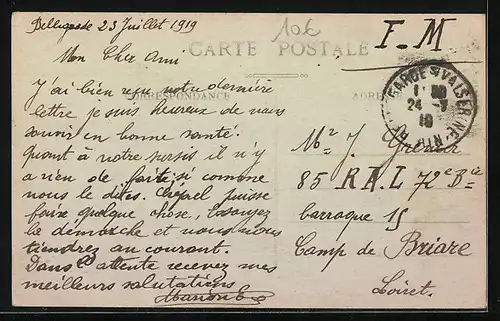 Bellegarde 23 Juillet 1919
10c
F-M
CARTE POSTALE
Mon Cher Ami
CORRESPONDANCE
J'ai bien reçu notre dernière
lettre je suis heureux de vous
savoir en bonne santé.
Quant à notre sursis il n'y
a rien de fait; si comme
nous le dites. puisse
faire quelque chose, essayez
la démarche et nous nous
tiendrez au courant.
Dans l'attente recevez mes
meilleurs salutations
BELLEGARDE S/VALSERINE AIN
24 -7
19
Mr J.
85 R.A.L 72e Bie
barraque 15
Camp de Briare
Loiret.